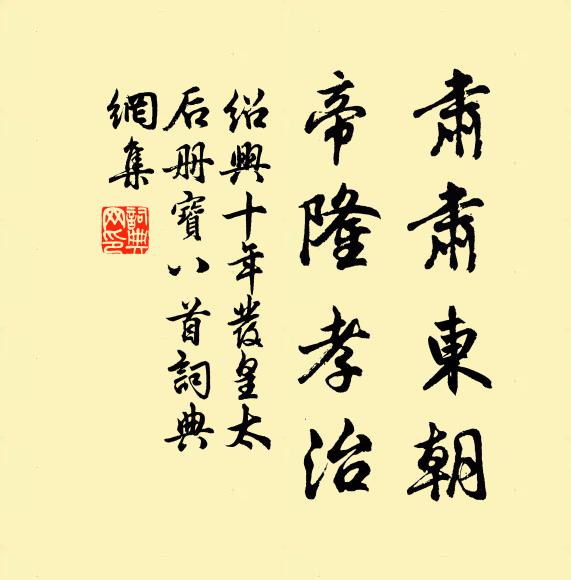 肅肅東朝
帝隆孝治
紹興十年發皇太
后册寶八首詞典
網集
詞典網印